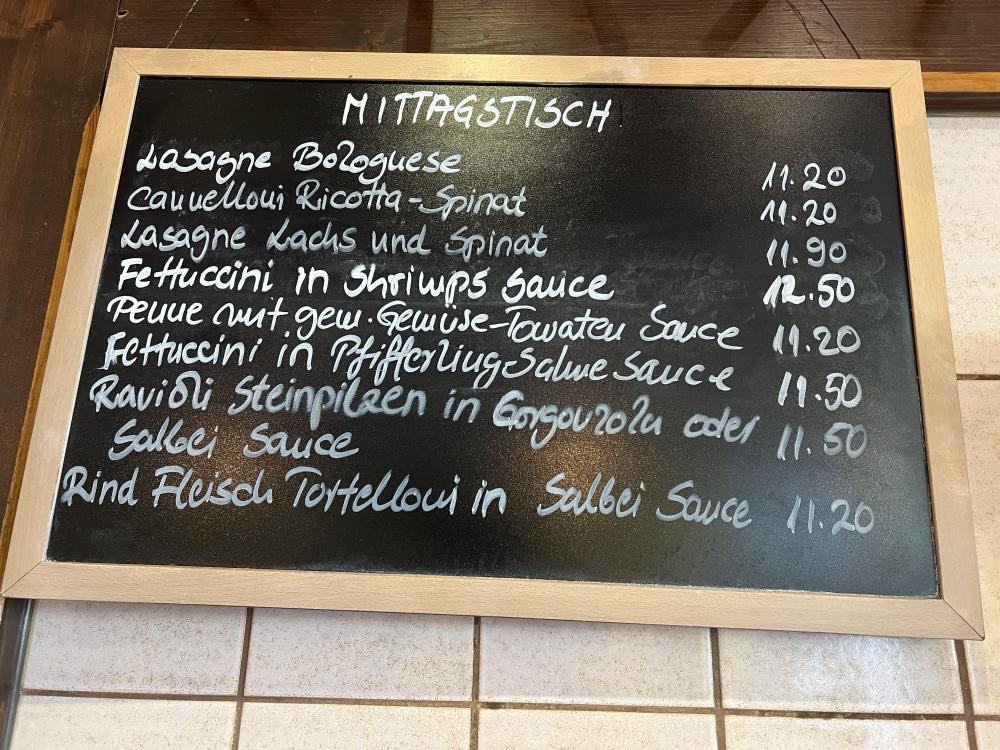 MITTAGSTISCH
Lasagne Bolognese 11.20
Cannelloni Ricotta-Spinat 11.20
Lasagne Lachs und Spinat 11.90
Fettuccini in Shrimps Sauce 12.50
Penne mit gem. Gemüse-Tomaten Sauce 11.20
Fettuccini in Pfifferling Sahne Sauce 11.50
Ravioli Steinpilzen in Gorgonzola oder 11.50
Salbei Sauce
Rind Fleisch Tortelloni in Salbei Sauce 11.20